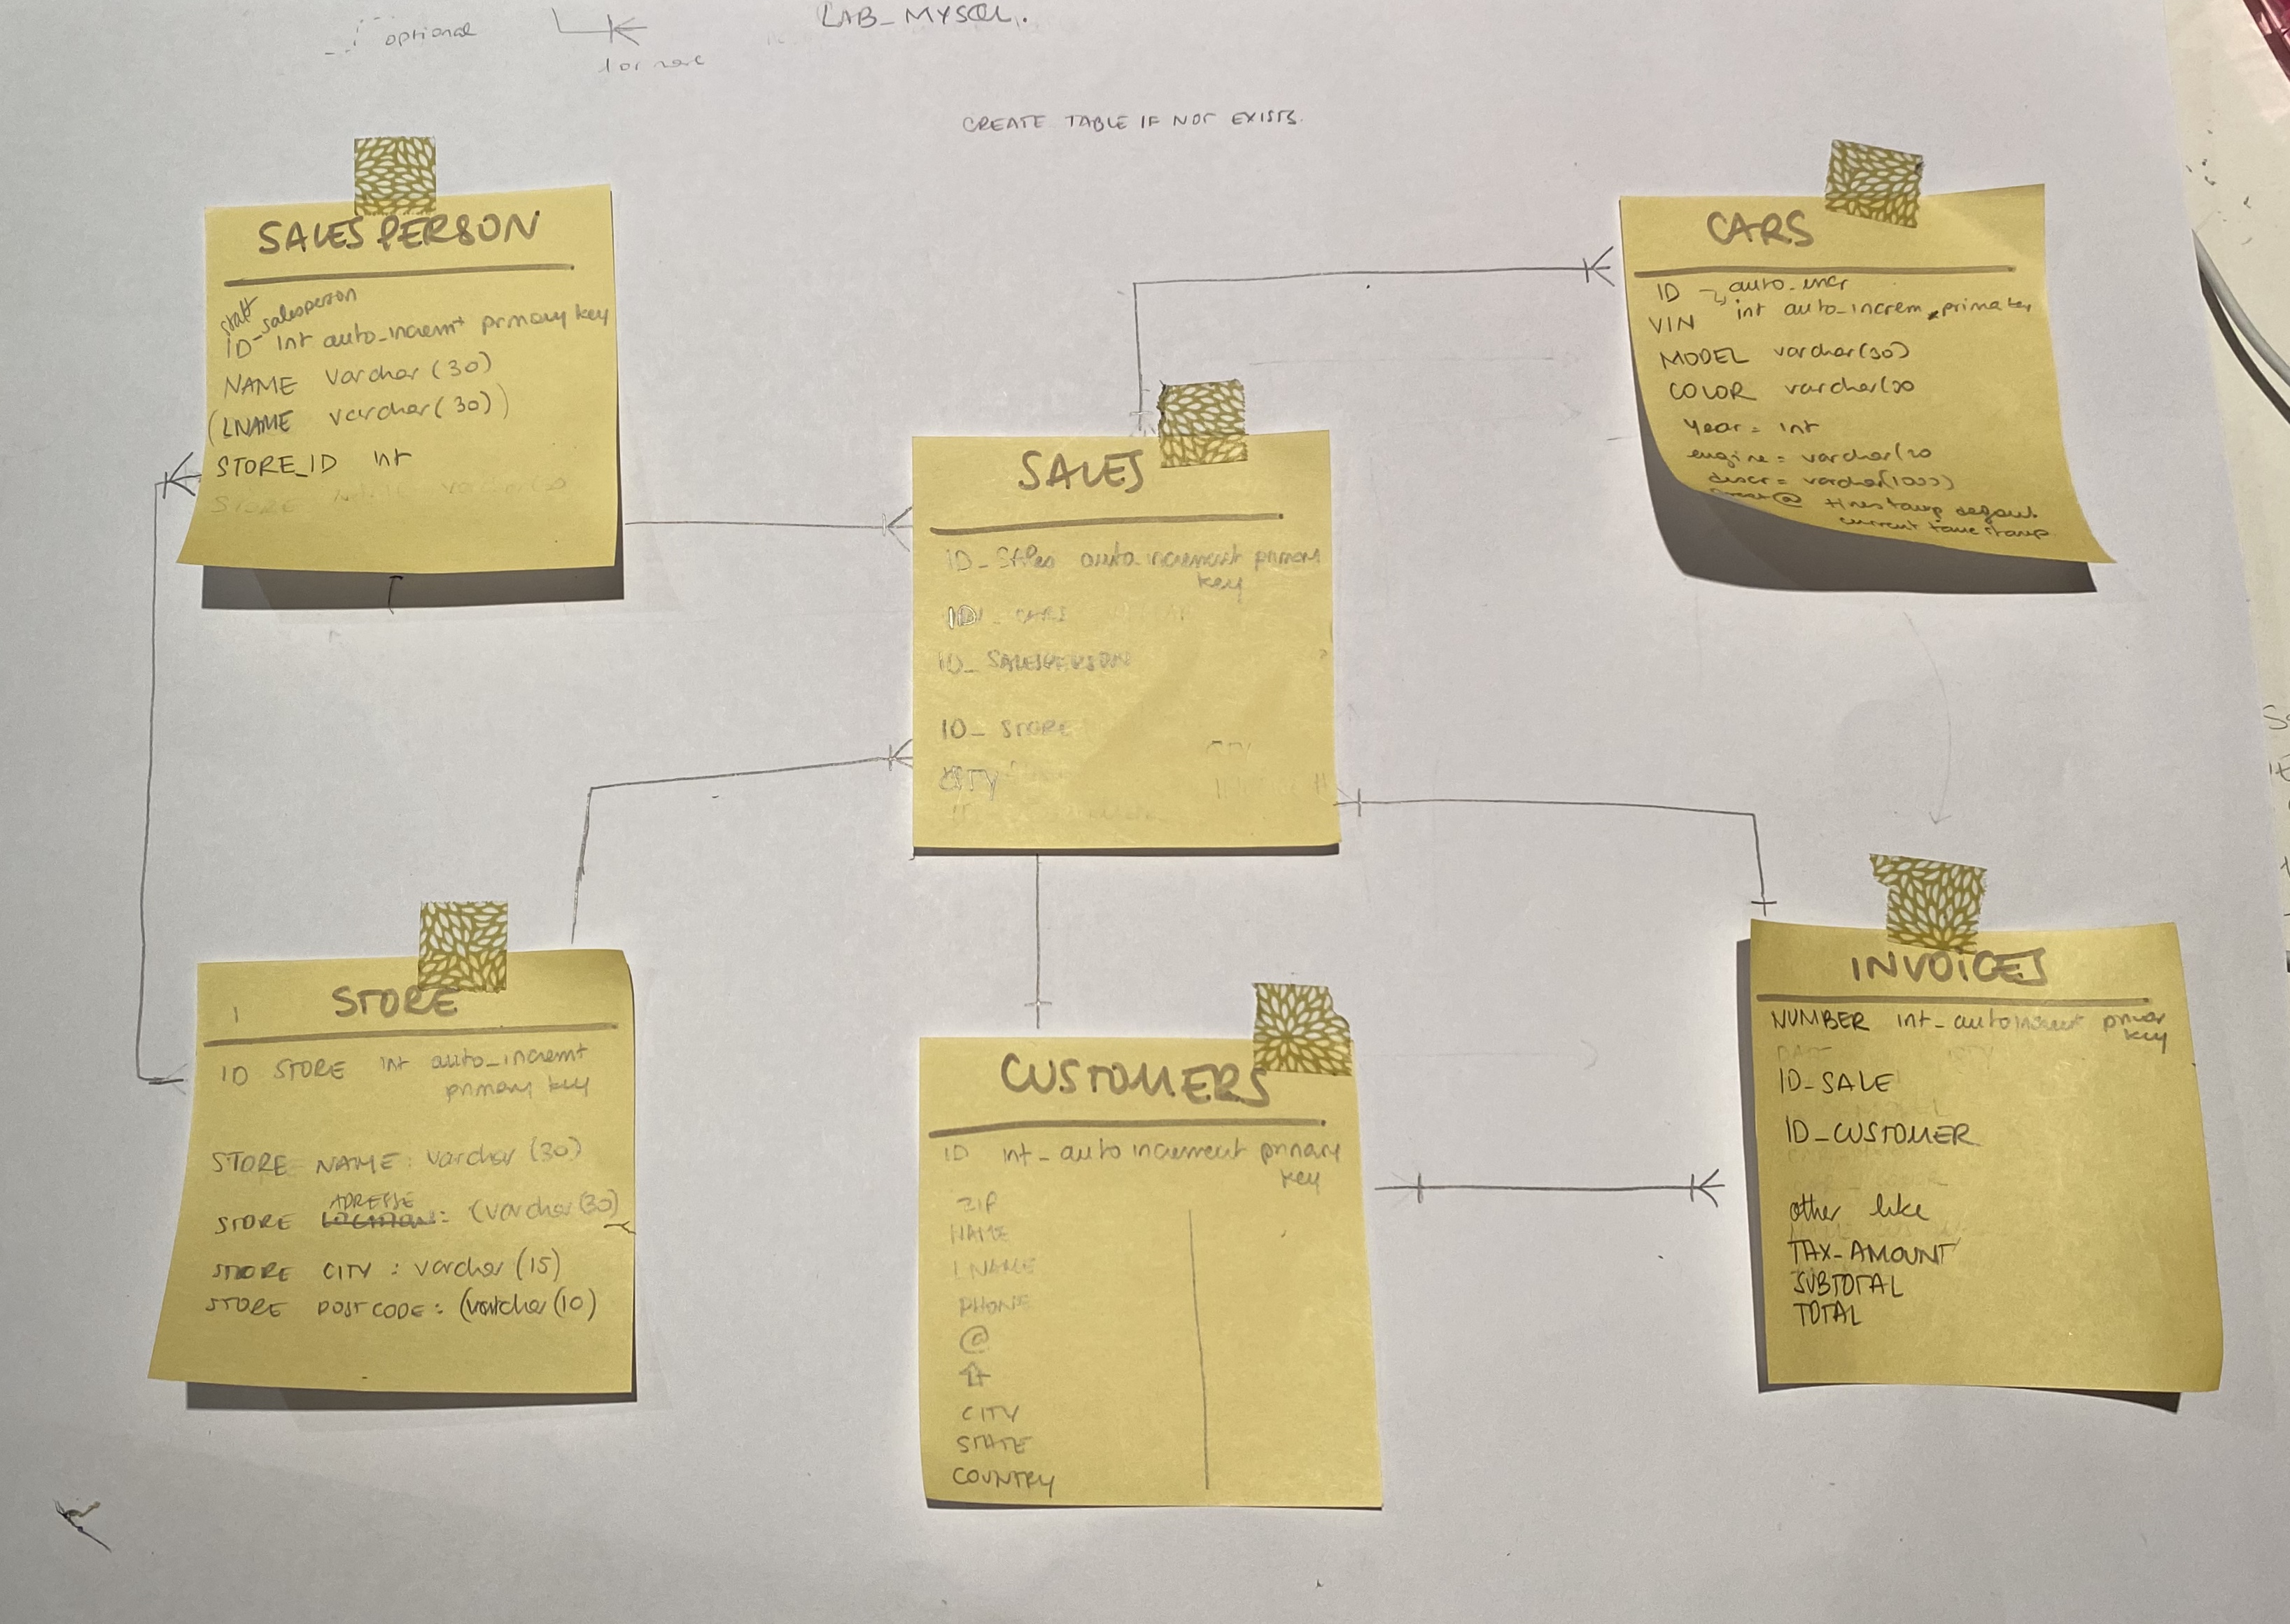 LAB_MYSQL.
optional
1 or more
CREATE TABLE IF NOT EXISTS.
SALES PERSON
staff
ID_salesperson
int auto_increm+ primary key
NAME varchar (30)
(LNAME varchar (30))
STORE_ID int
STORE varchar(30
CARS
ID auto_incr
VIN int auto_increm primakey
MODEL varchar(30)
COLOR varchar(30
year = int
engine = varchar(20
descr = varchar(1000)
@ timestamp defaul.
current timestamp
SALES
ID_SAles auto increment primary
key
ID_CARS
ID_SALESPERSON
ID_ STORE
CITY
STORE
1
ID STORE int auto_incremt
primary key
STORE NAME: varchar (30)
ADRESSE
STORE LOCATION: (varchar (30)
STORE CITY : varchar (15)
STORE POSTCODE: (varchar (10)
CUSTOMERS
ID int_auto increment primary
key
ZIP
NAME
LNAME
PHONE
@
CITY
STATE
COUNTRY
INVOICES
NUMBER int_auto
key
ID_SALE
ID_CUSTOMER
other like
TAX-AMOUNT
SUBTOTAL
TOTAL